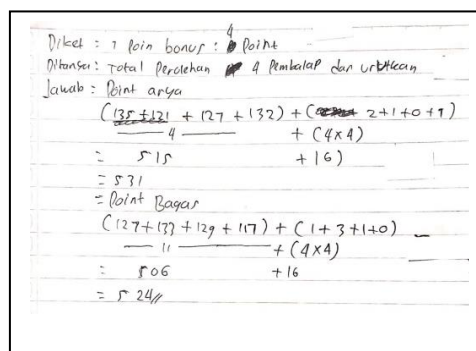 Diket : 1 Poin bonus : 4 Point
Ditanya : Total Perolehan 4 Pembalap dan urutkan
Jawab : Point arya
(135 + 121 + 127 + 132) + ( 2 + 1 + 0 + 1)
4 + (4x4)
= 515 + 16)
= 531
= Point Bagas
(127 + 133 + 129 + 117) + (1 + 3 + 1 + 0)
11 + (4x4)
= 506 + 16
= 524 //